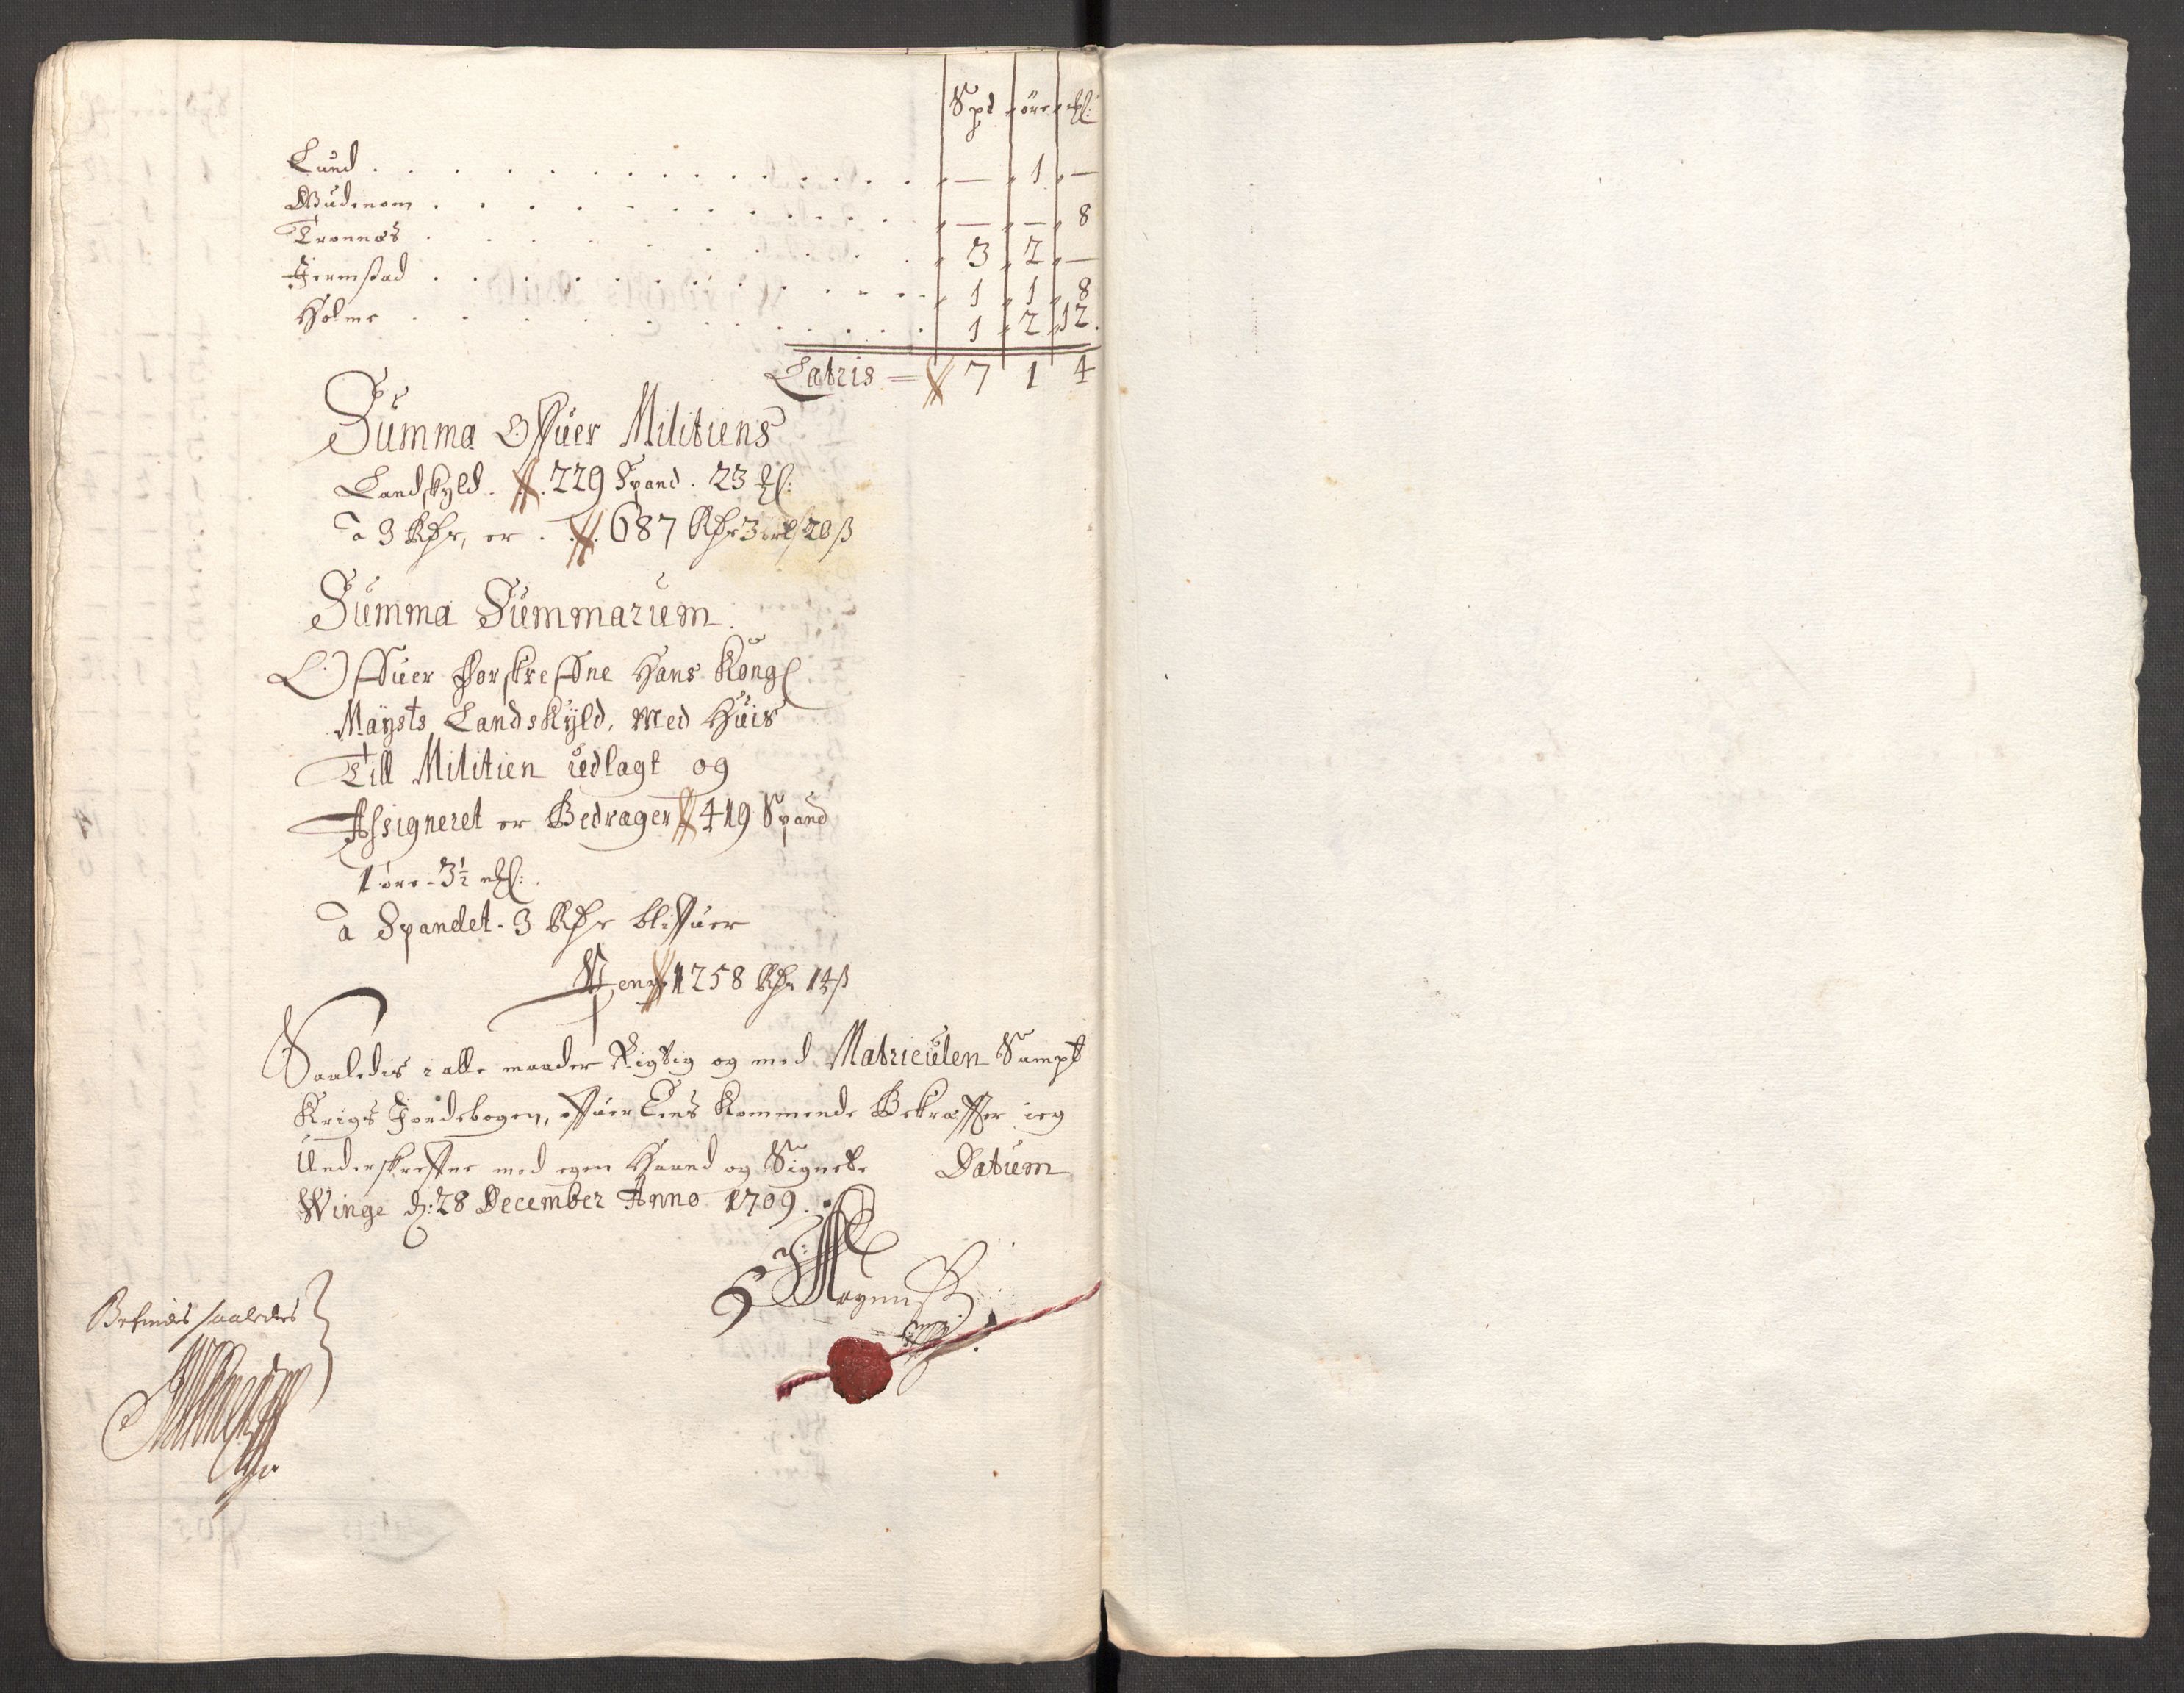 Spd øre mkl:
Lund . . . — 1 —
Wudenom . . . — — 8
Tronnæs . . . 3 2 —
Fermstad . . . 1 1 8
Holme . . . 1 2 12.
Latris = 7 1 4
Summa Offuer Militiens
Landskyld . 229 Spand . 23 mkl:
a 3 Rdr, er . 687 Rdr 3 ort 20 ß
Summa Summarum.
Offuer forskreffne Hans Kongl
Maÿsts Landskÿld, Med Huis
Till Militien udlagt og
Assigneret er Bedrager 419 Spand
1 øre - 3½ mkl:
a Spandet - 3 Rdr bliffuer
Penge 1258 Rdr 14 ß
Saaledis i alle maader Rigtig og med Matriculen Sampt
Krigs Jordebogen, offuer Eens Kommende Bekræffter ieg
Underskreffne med egen Haand og Signete Datum
Winge d: 28 December Anno 1709.
Befindes saaledes